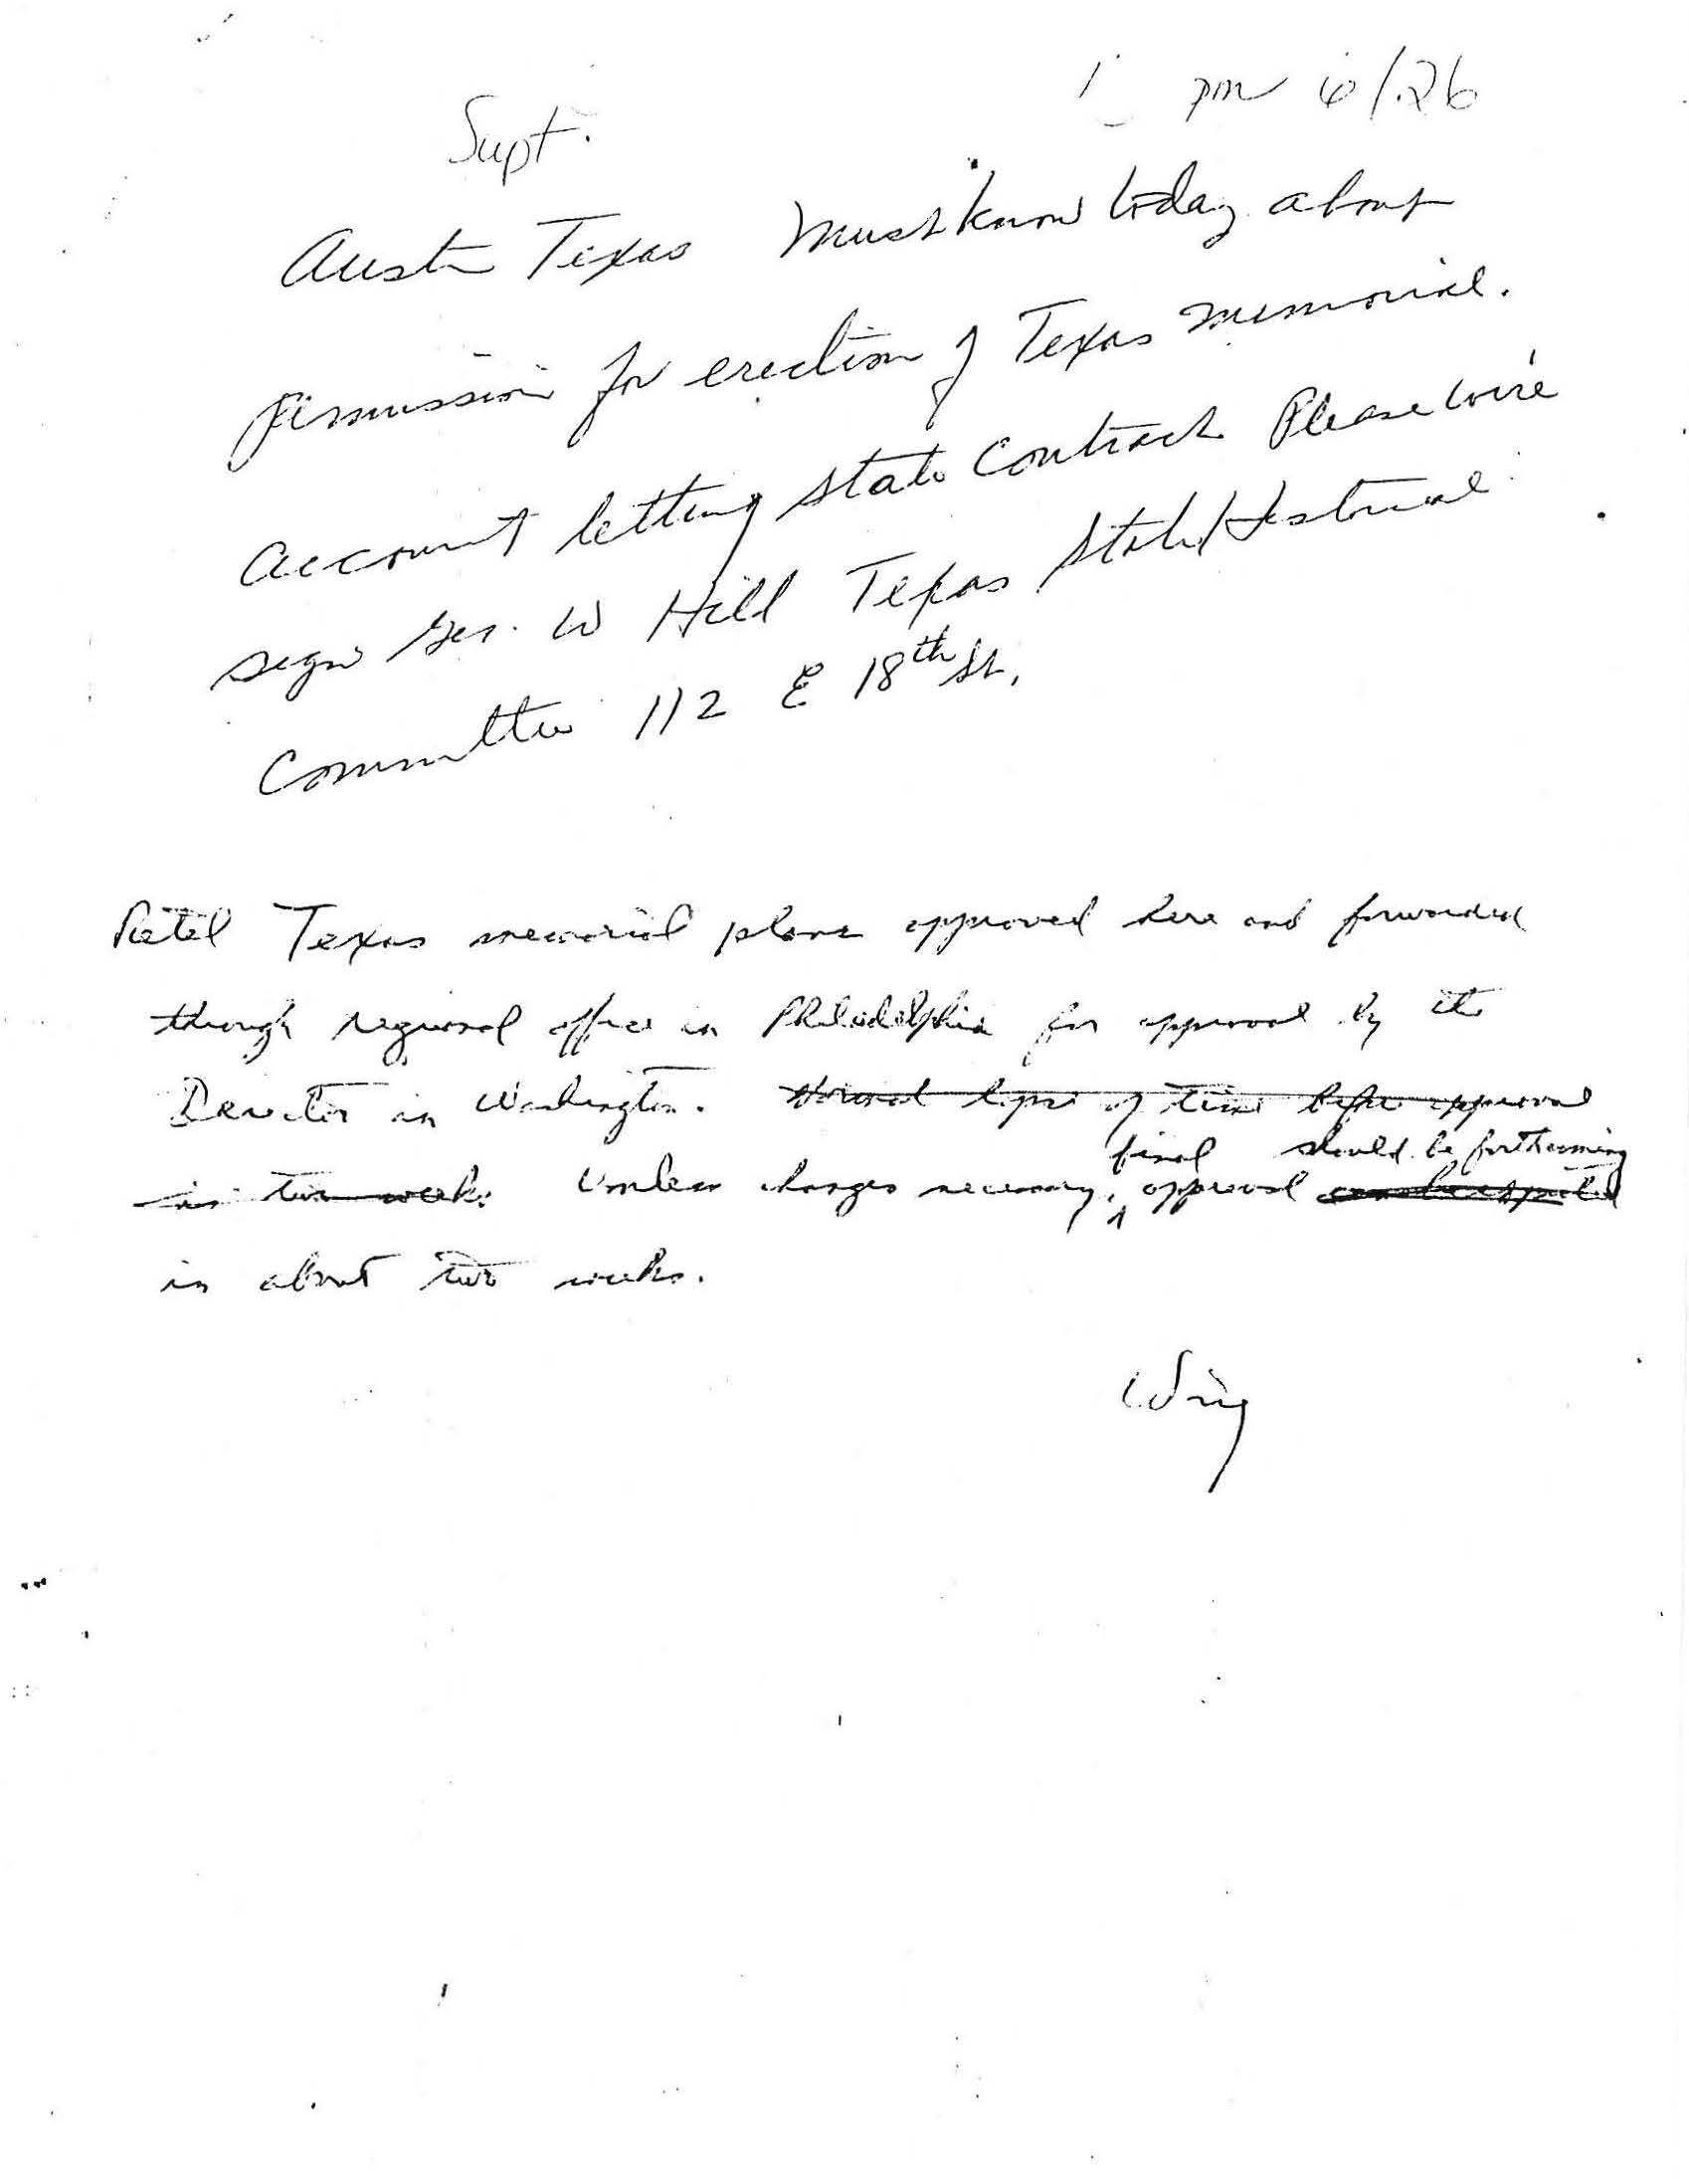 1 pm 6/26
Supt.
Austin Texas Must know today about
permission for erection of Texas memorial.
account letting state contract Please wire
sign Geo. W Hill Texas State Historical
Committee 112 E 18th St.
Retel Texas memorial plans approved here and forwarded
through regional office in Philadelphia for approval by the
Director in Washington. Normal lapse of time before approval
is two weeks. Unless changes necessary, final approval should be forthcoming
in about two weeks.